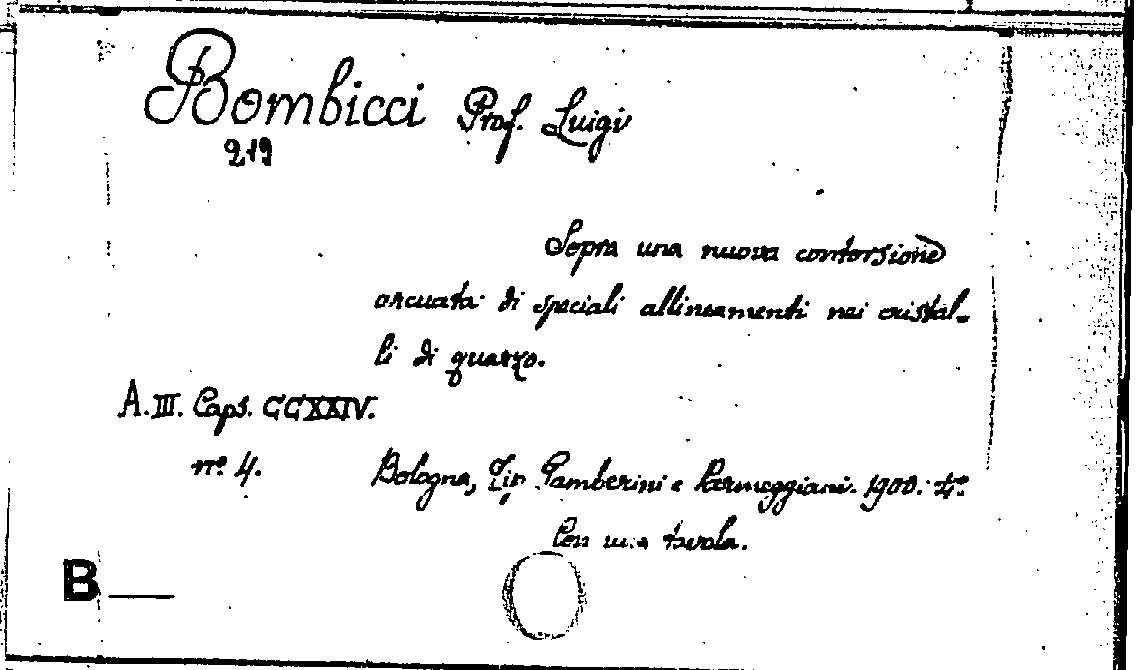 Bombicci Prof. Luigi
219
Sopra una nuova contorsione
arcuata di speciali allineamenti nei cristal-
li di quarzo.
A. III. Caps. CCXXIV.
nº 4.
Bologna, Tip Gamberini e Parmeggiani. 1900. 4º
Con una tavola.
B